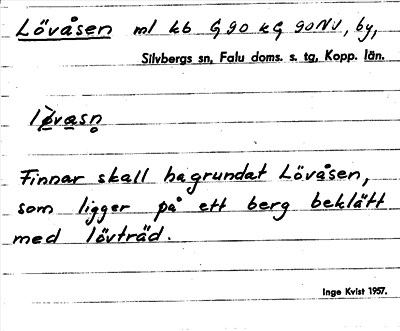 Lövåsen ml kb G 90 kG 90NV, by,
Silvbergs sn, Falu doms. s. tg, Kopp. län.
Finnar skall ha grundat Lövåsen,
som ligger på ett berg beklätt
med lövträd.
Inge Kvist 1957.